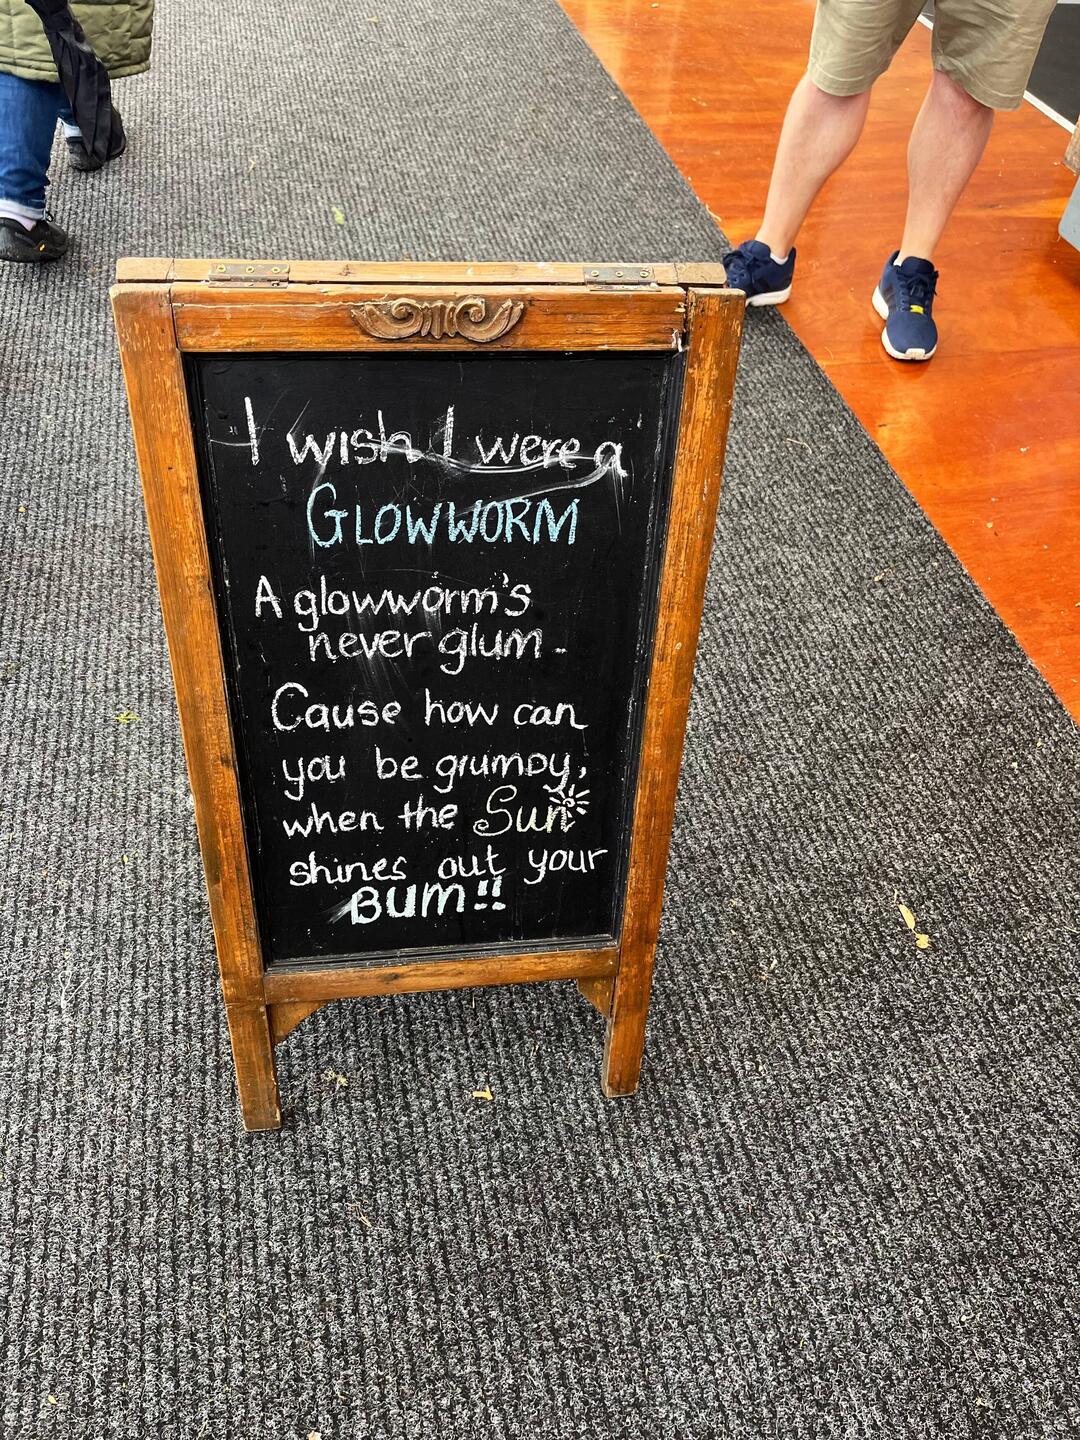 I wish I were a
GLOWWORM
A glowworm's
never glum -
Cause how can
you be grumpy,
when the Sun
shines out your
BUM!!